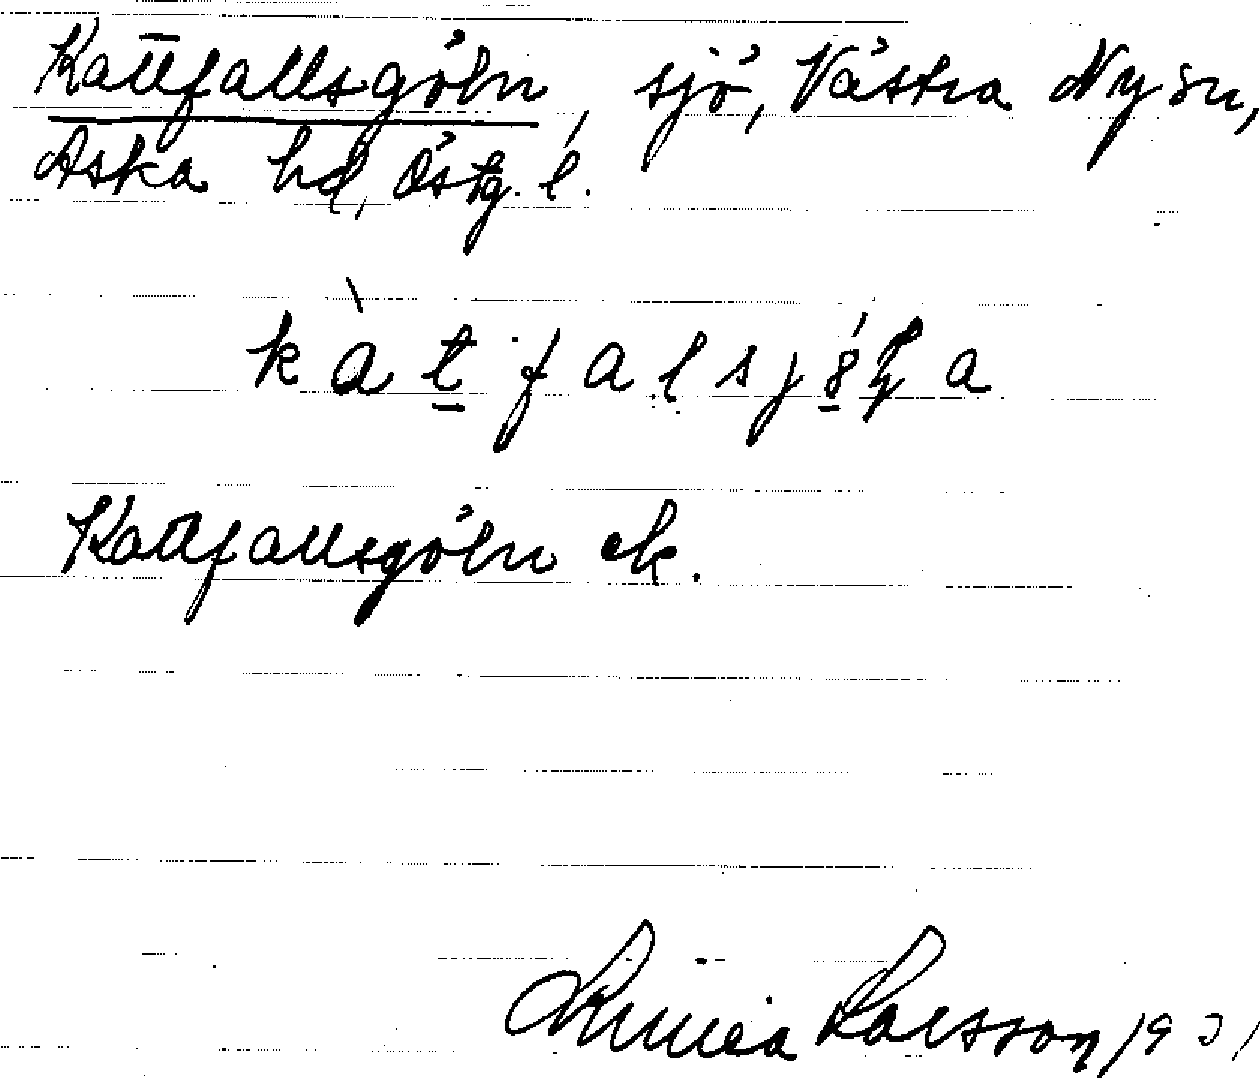 Kattfallsgöln, sjö, Västra Ny sn,
Aska hd, Östg. l.
Kattfallsgöln ek.
Linnea Larsson 1931